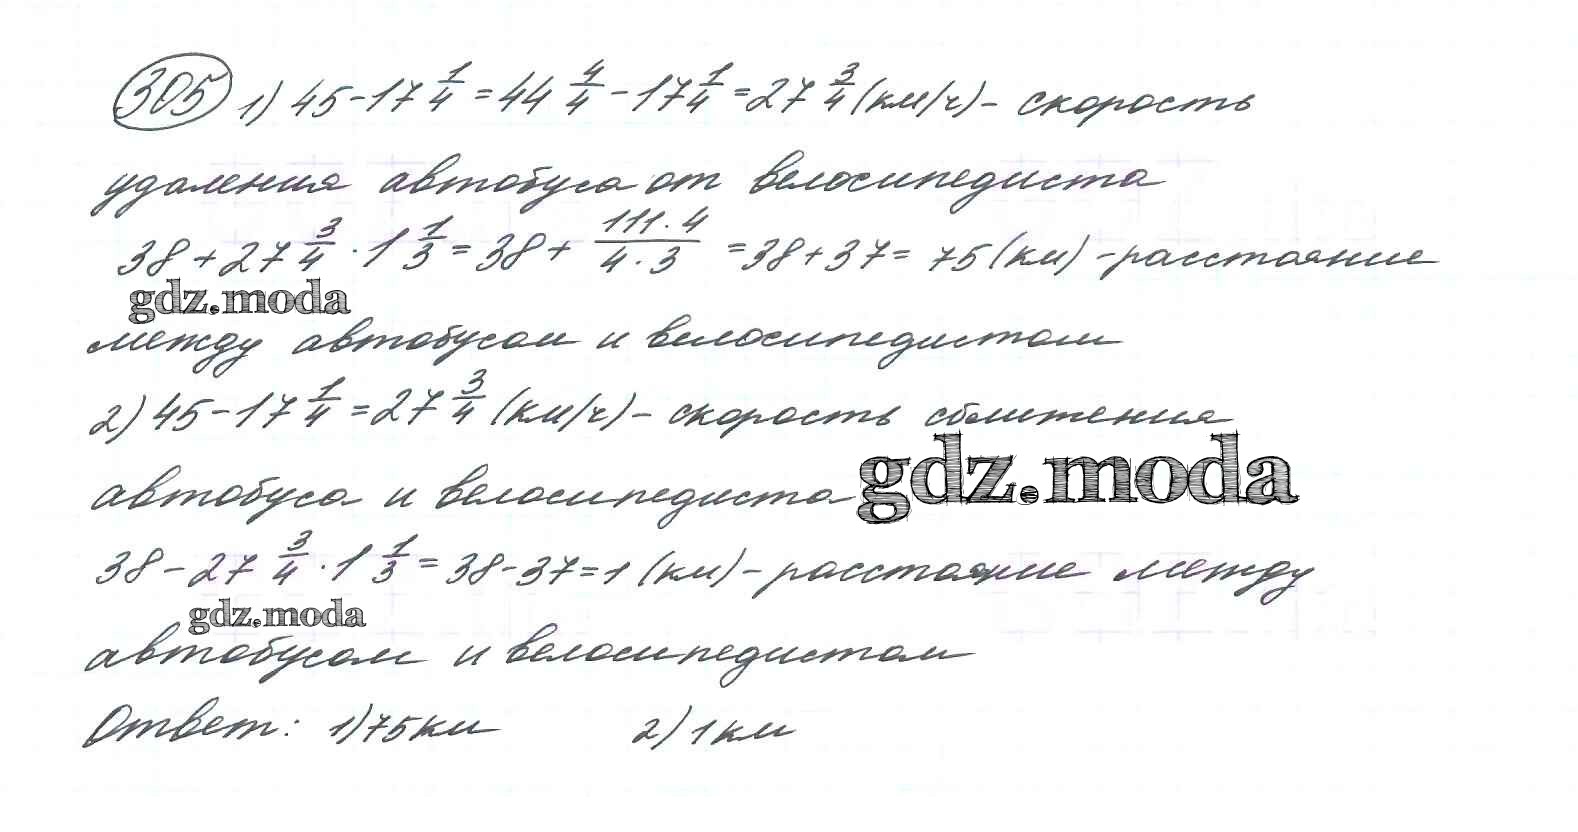 305 1) 45-17 1/4 = 44 4/4 - 17 1/4 = 27 3/4 (км/ч) - скорость
удаления автобуса от велосипедиста
38 + 27 3/4 · 1 1/3 = 38 + 111·4/4·3 = 38+37 = 75 (км) - расстояние
gdz.moda
между автобусом и велосипедистом
2) 45-17 1/4 = 27 3/4 (км/ч) - скорость сближения
автобуса и велосипедиста gdz.moda
38 - 27 3/4 · 1 1/3 = 38-37=1 (км) - расстояние между
gdz.moda
автобусом и велосипедистом
Ответ: 1) 75 км 2) 1 км